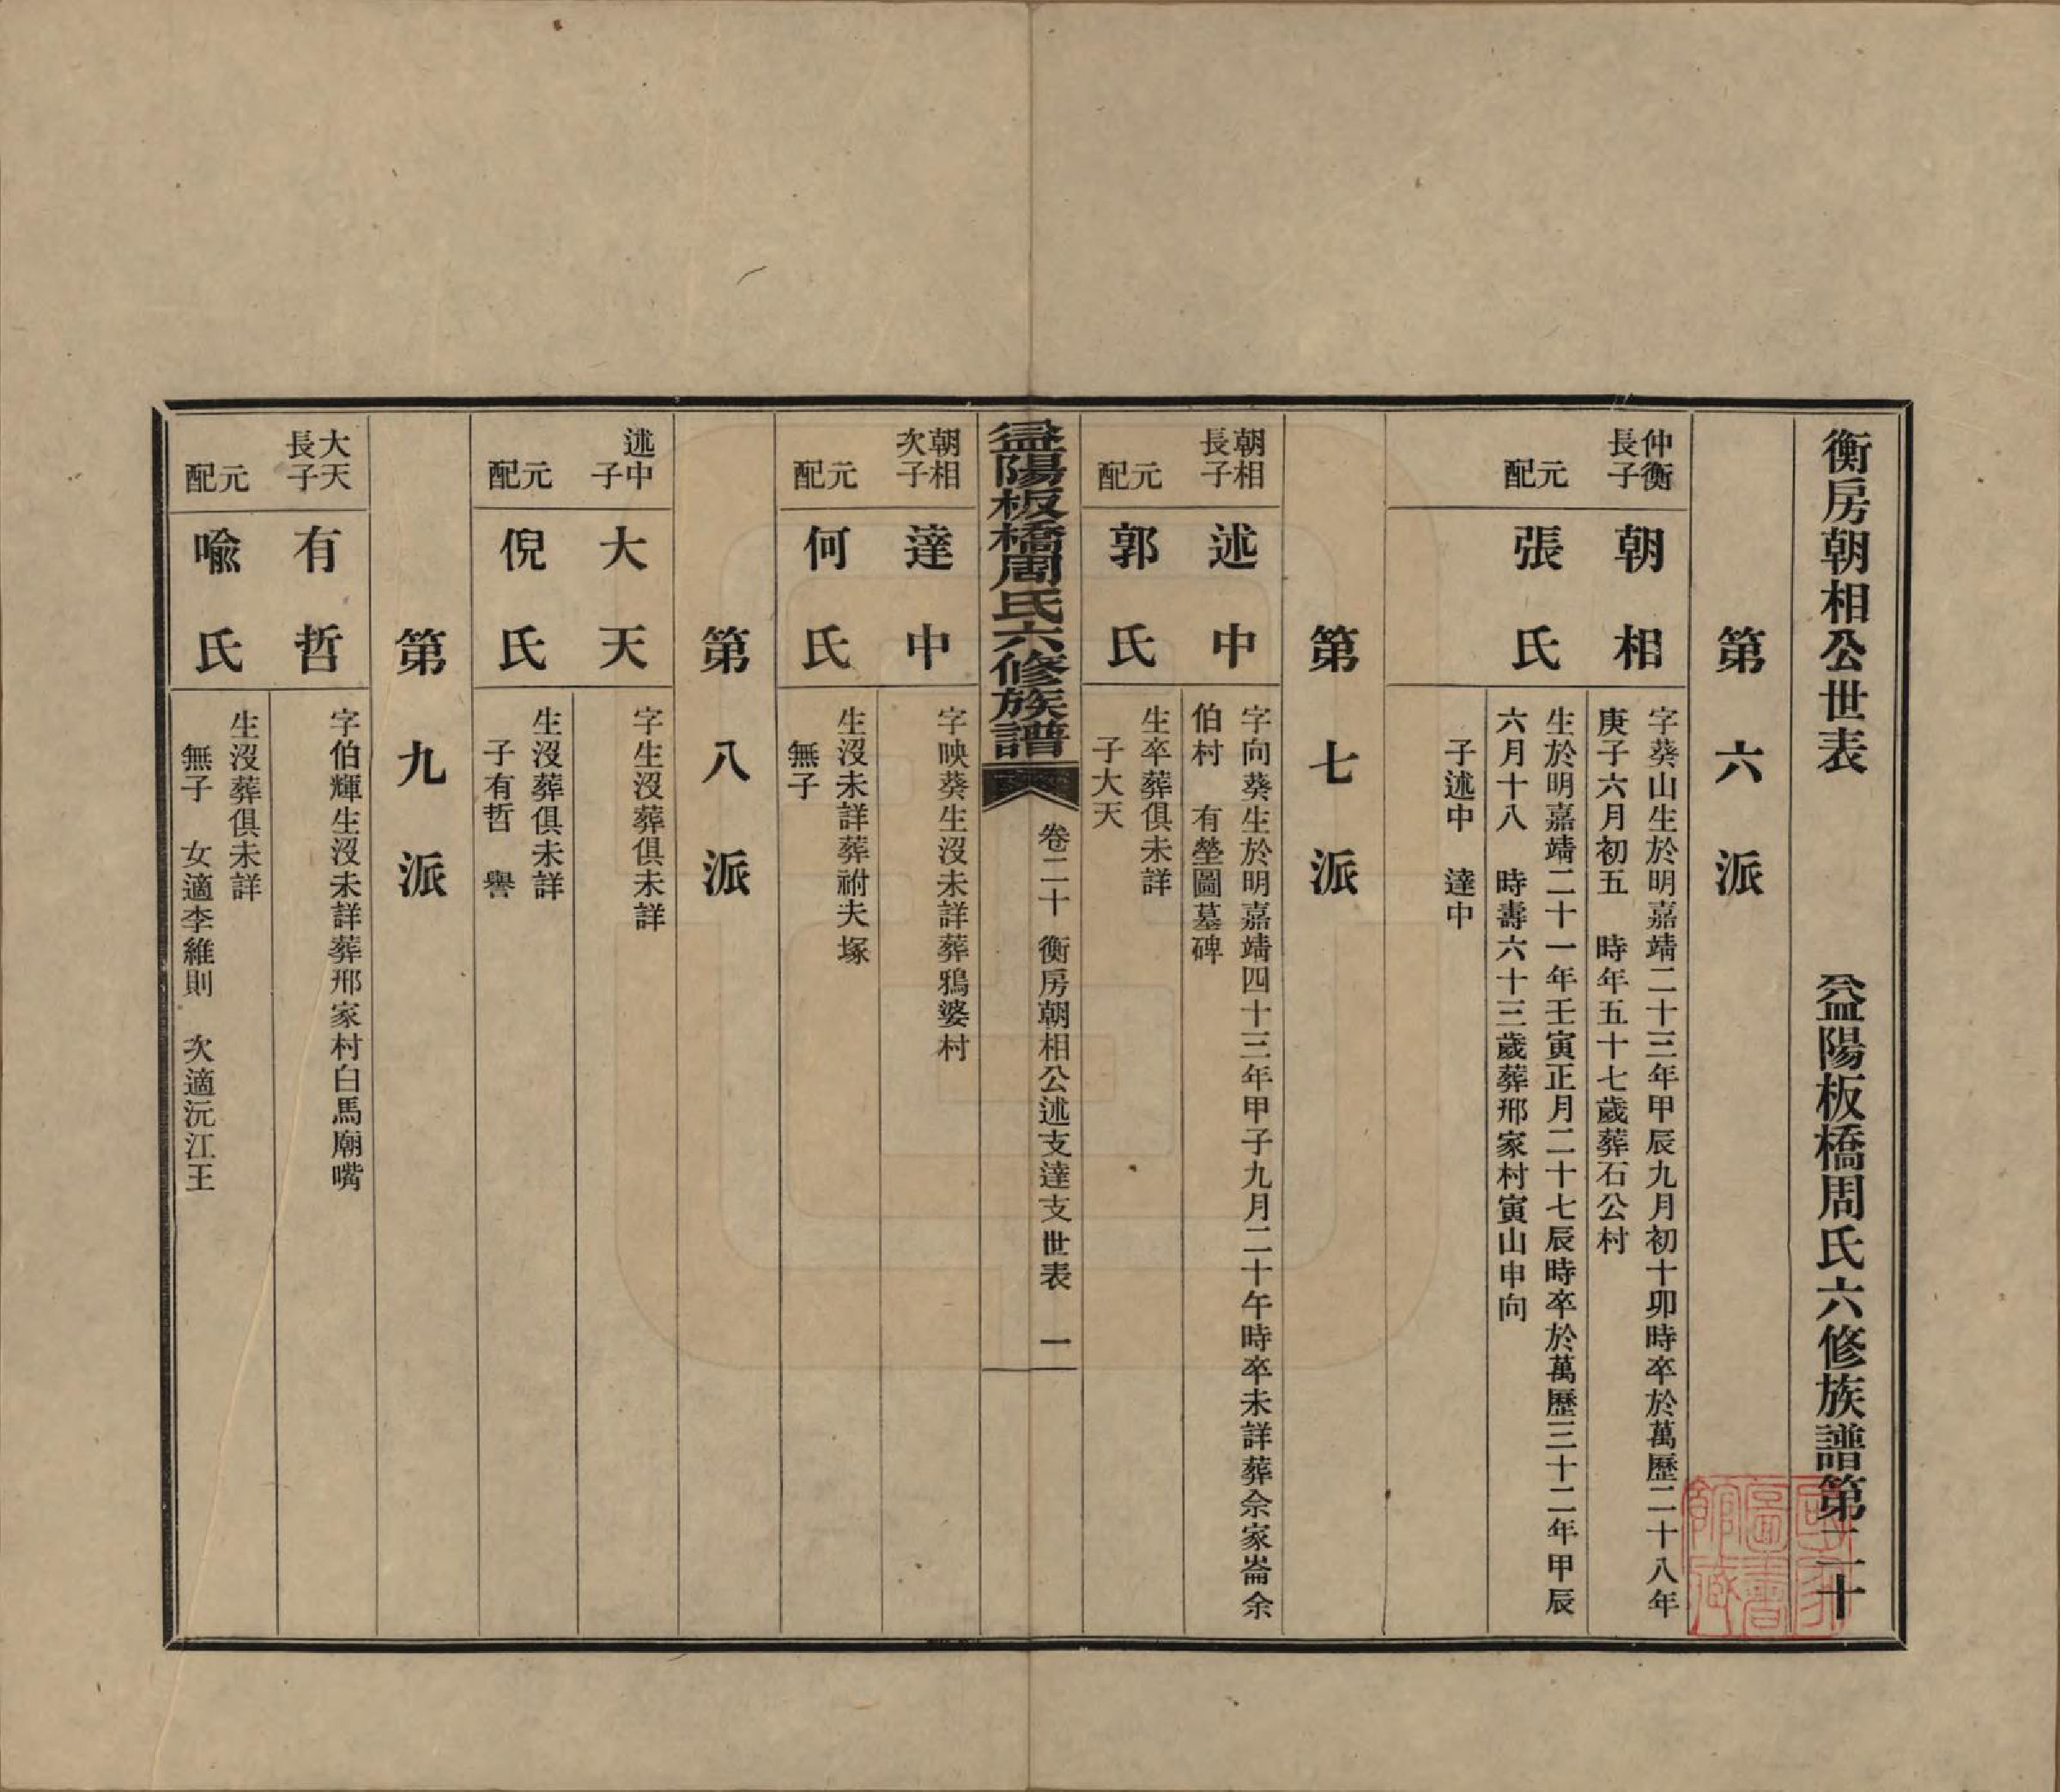 衡房朝相公世表　益陽板橋周氏六修族譜第二十
第六派
仲衡長子
朝相
字葵山生於明嘉靖二十三年甲辰九月初十卯時卒於萬歷二十八年
庚子六月初五　時年五十七歲葬石公村
元配
張氏
生於明嘉靖二十一年壬寅正月二十七辰時卒於萬歷三十二年甲辰
六月十八　時壽六十三歲葬邢家村寅山申向
子述中　達中
第七派
朝相長子
述中
字向葵生於明嘉靖四十三年甲子九月二十午時卒未詳葬佘家崙余
伯村　有塋圖墓碑
元配
郭氏
生卒葬俱未詳
子大天
益陽板橋周氏六修族譜
卷二十　衡房朝相公述支達支世表　一
朝相次子
達中
字映葵生沒未詳葬鴉婆村
元配
何氏
生沒未詳葬祔夫塚
無子
第八派
述中子
大天
字生沒葬俱未詳
元配
倪氏
生沒葬俱未詳
子有哲　譽
第九派
大天長子
有哲
字伯輝生沒未詳葬邢家村白馬廟嘴
元配
喩氏
生沒葬俱未詳
無子　女適李維則　次適沅江王
國家圖書館藏